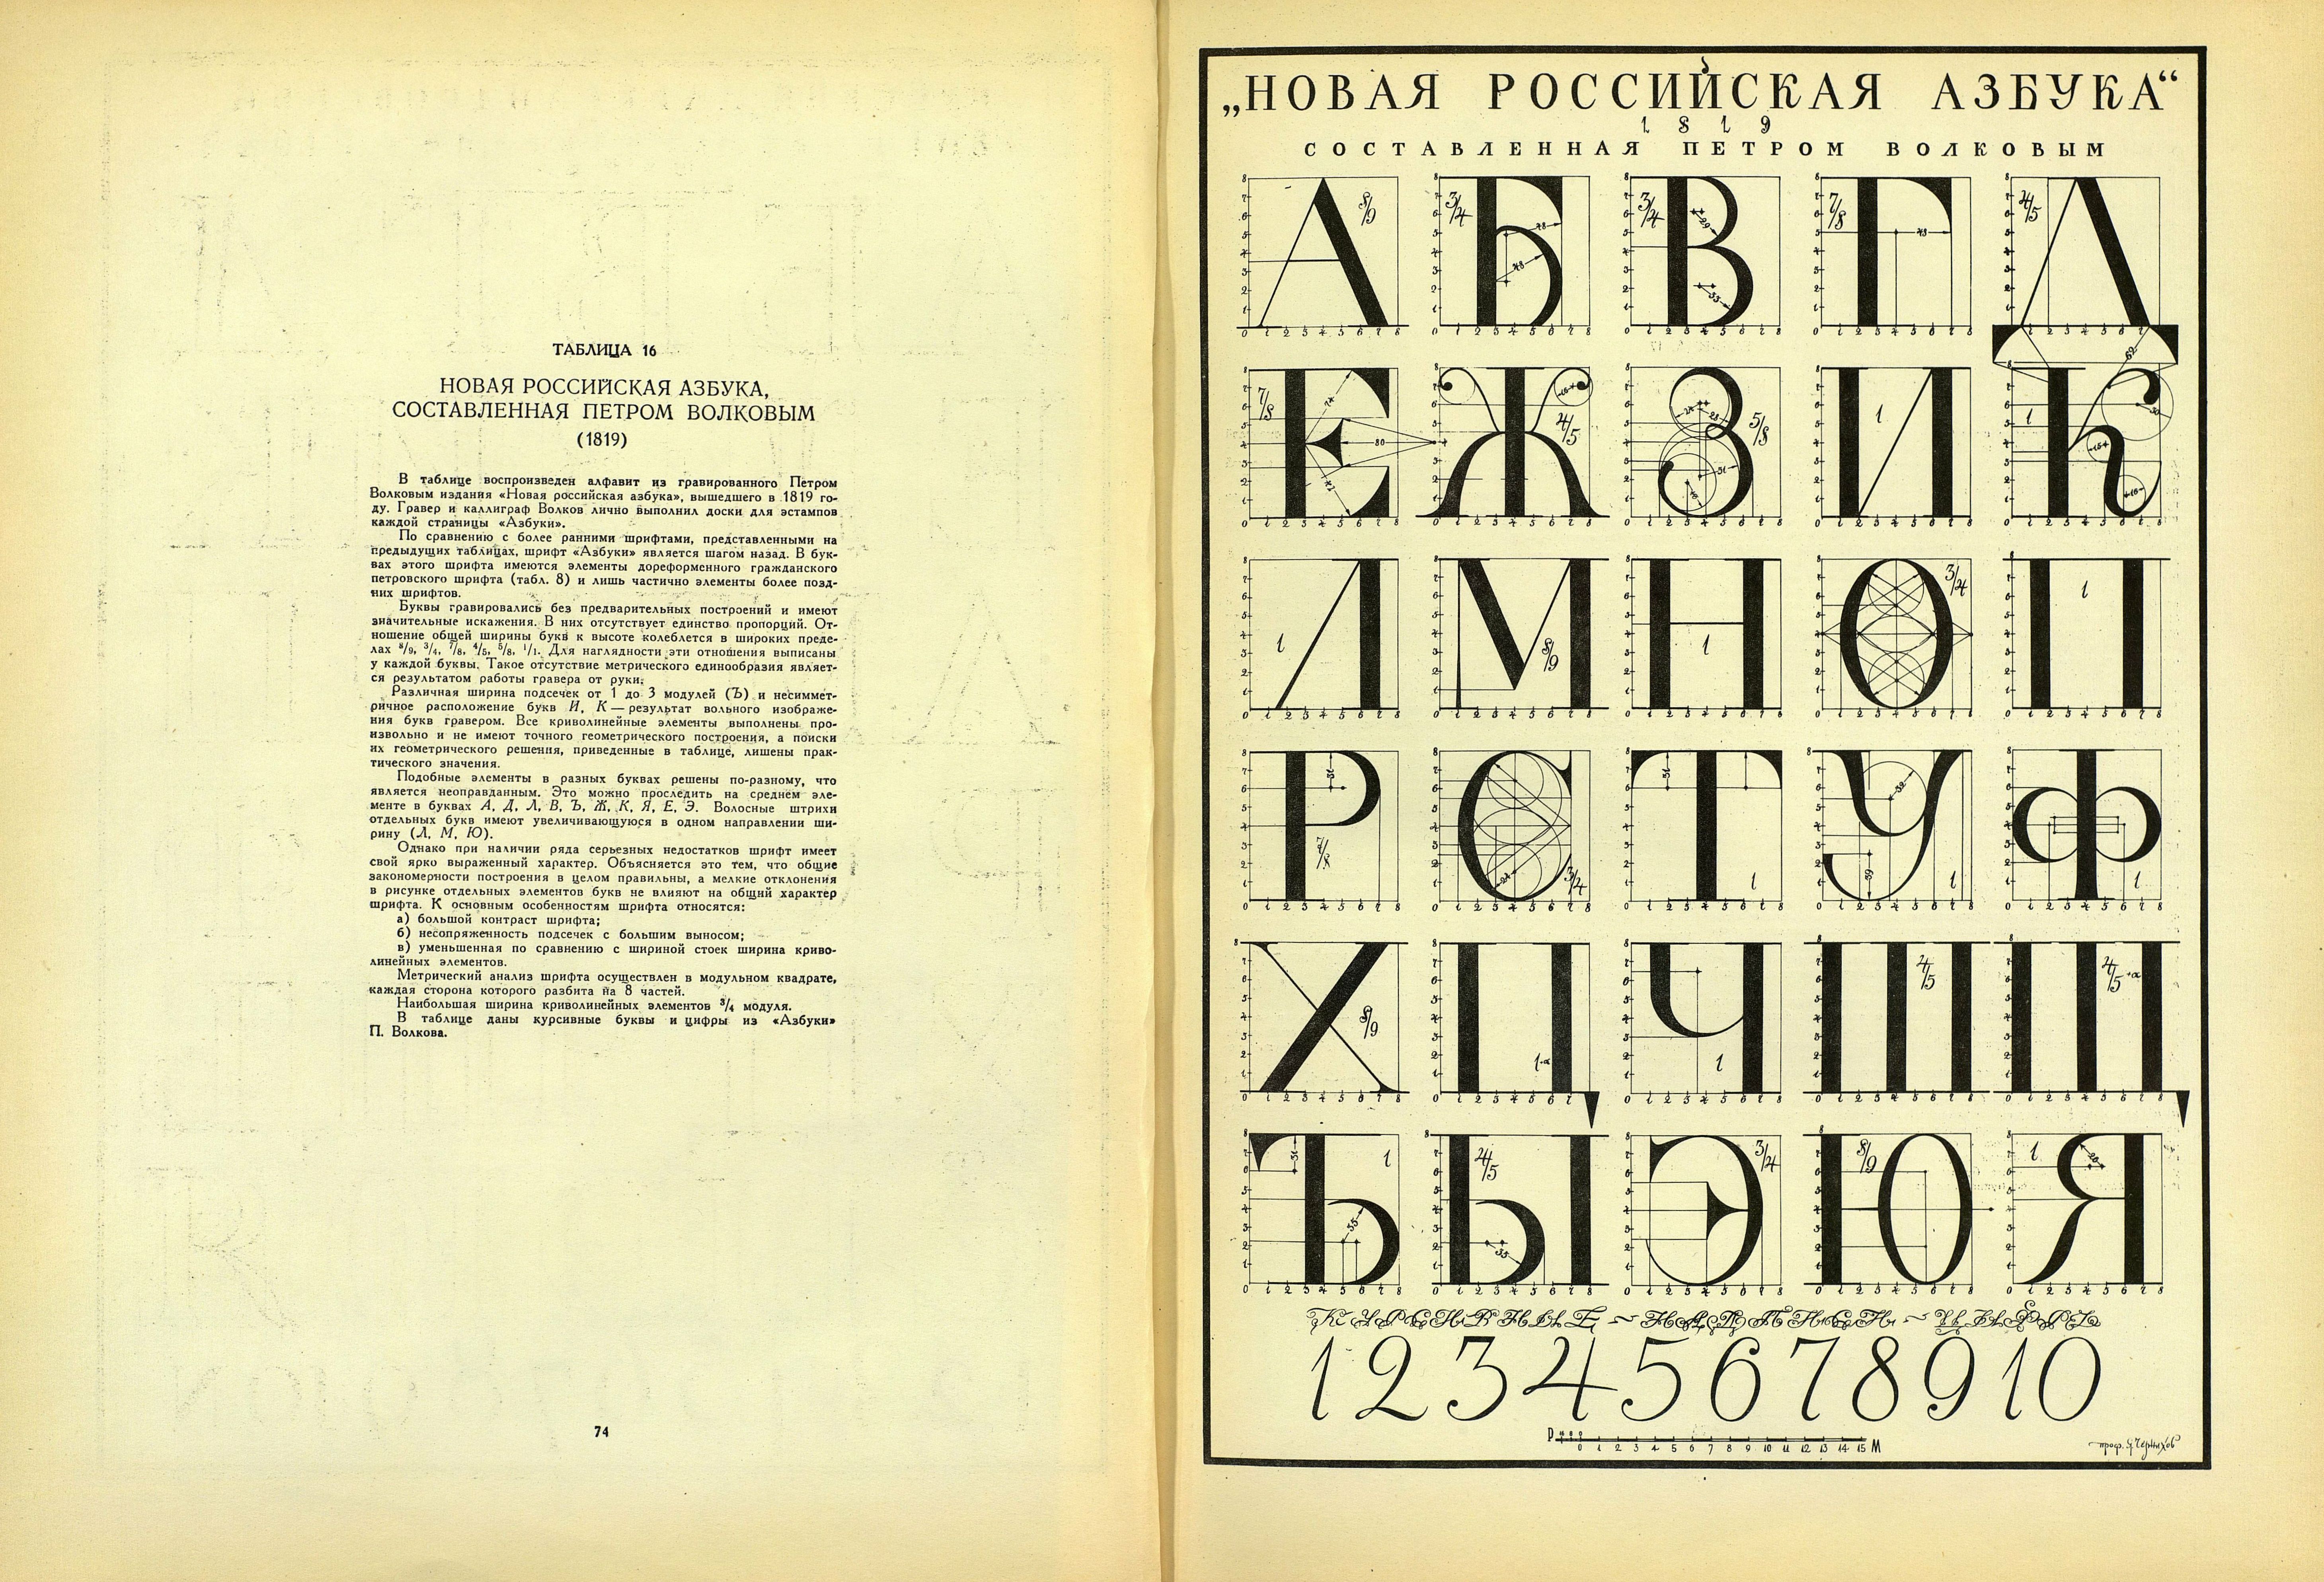 ТАБЛИЦА 16
НОВАЯ РОССИЙСКАЯ АЗБУКА,
СОСТАВЛЕННАЯ ПЕТРОМ ВОЛКОВЫМ
(1819)
В таблице воспроизведен алфавит из гравированного Петром
Волковым издания «Новая российская азбука», вышедшего в 1819 го-
ду. Гравер и каллиграф Волков лично выполнил доски для эстампов
каждой страницы «Азбуки».
По сравнению с более ранними шрифтами, представленными на
предыдущих таблицах, шрифт «Азбуки» является шагом назад. В бук-
вах этого шрифта имеются элементы дореформенного гражданского
петровского шрифта (табл. 8) и лишь частично элементы более позд-
них шрифтов.
Буквы гравировались без предварительных построений и имеют
значительные искажения. В них отсутствует единство пропорций. От-
ношение общей ширины букв к высоте колеблется в широких преде-
лах 8/9, 3/4, 7/8, 4/5, 5/8, 1/1. Для наглядности эти отношения выписаны
у каждой буквы. Такое отсутствие метрического единообразия являет-
ся результатом работы гравера от руки.
Различная ширина подсечек от 1 до 3 модулей (Ъ) и несиммет-
ричное расположение букв И, К — результат вольного изображе-
ния букв гравером. Все криволинейные элементы выполнены про-
извольно и не имеют точного геометрического построения, а поиски
их геометрического решения, приведенные в таблице, лишены прак-
тического значения.
Подобные элементы в разных буквах решены по-разному, что
является неоправданным. Это можно проследить на среднем эле-
менте в буквах А, Д, Л, В, Ъ, Ж, К, Я, Е, Э. Волосные штрихи
отдельных букв имеют увеличивающуюся в одном направлении ши-
рину (Л, М, Ю).
Однако при наличии ряда серьезных недостатков шрифт имеет
свой ярко выраженный характер. Объясняется это тем, что общие
закономерности построения в целом правильны, а мелкие отклонения
в рисунке отдельных элементов букв не влияют на общий характер
шрифта. К основным особенностям шрифта относятся:
а) большой контраст шрифта;
б) несопряженность подсечек с большим выносом;
в) уменьшенная по сравнению с шириной стоек ширина криво-
линейных элементов.
Метрический анализ шрифта осуществлен в модульном квадрате,
каждая сторона которого разбита на 8 частей.
Наибольшая ширина криволинейных элементов 3/4 модуля.
В таблице даны курсивные буквы и цифры из «Азбуки»
П. Волкова.
74
„НОВАЯ РОССИЙСКАЯ АЗБУКА“
1819
СОСТАВЛЕННАЯ ПЕТРОМ ВОЛКОВЫМ
А Б В Г Д
Е Ж З И К
Л М Н О П
Р С Т У Ф
Х Ц Ч Ш Щ
Ъ Ы Э Ю Я
1 2 3 4 5 6 7 8 9 10
0 1 2 3 4 5 6 7 8 9 10 11 12 13 14 15 М
проф. Я Чернихов